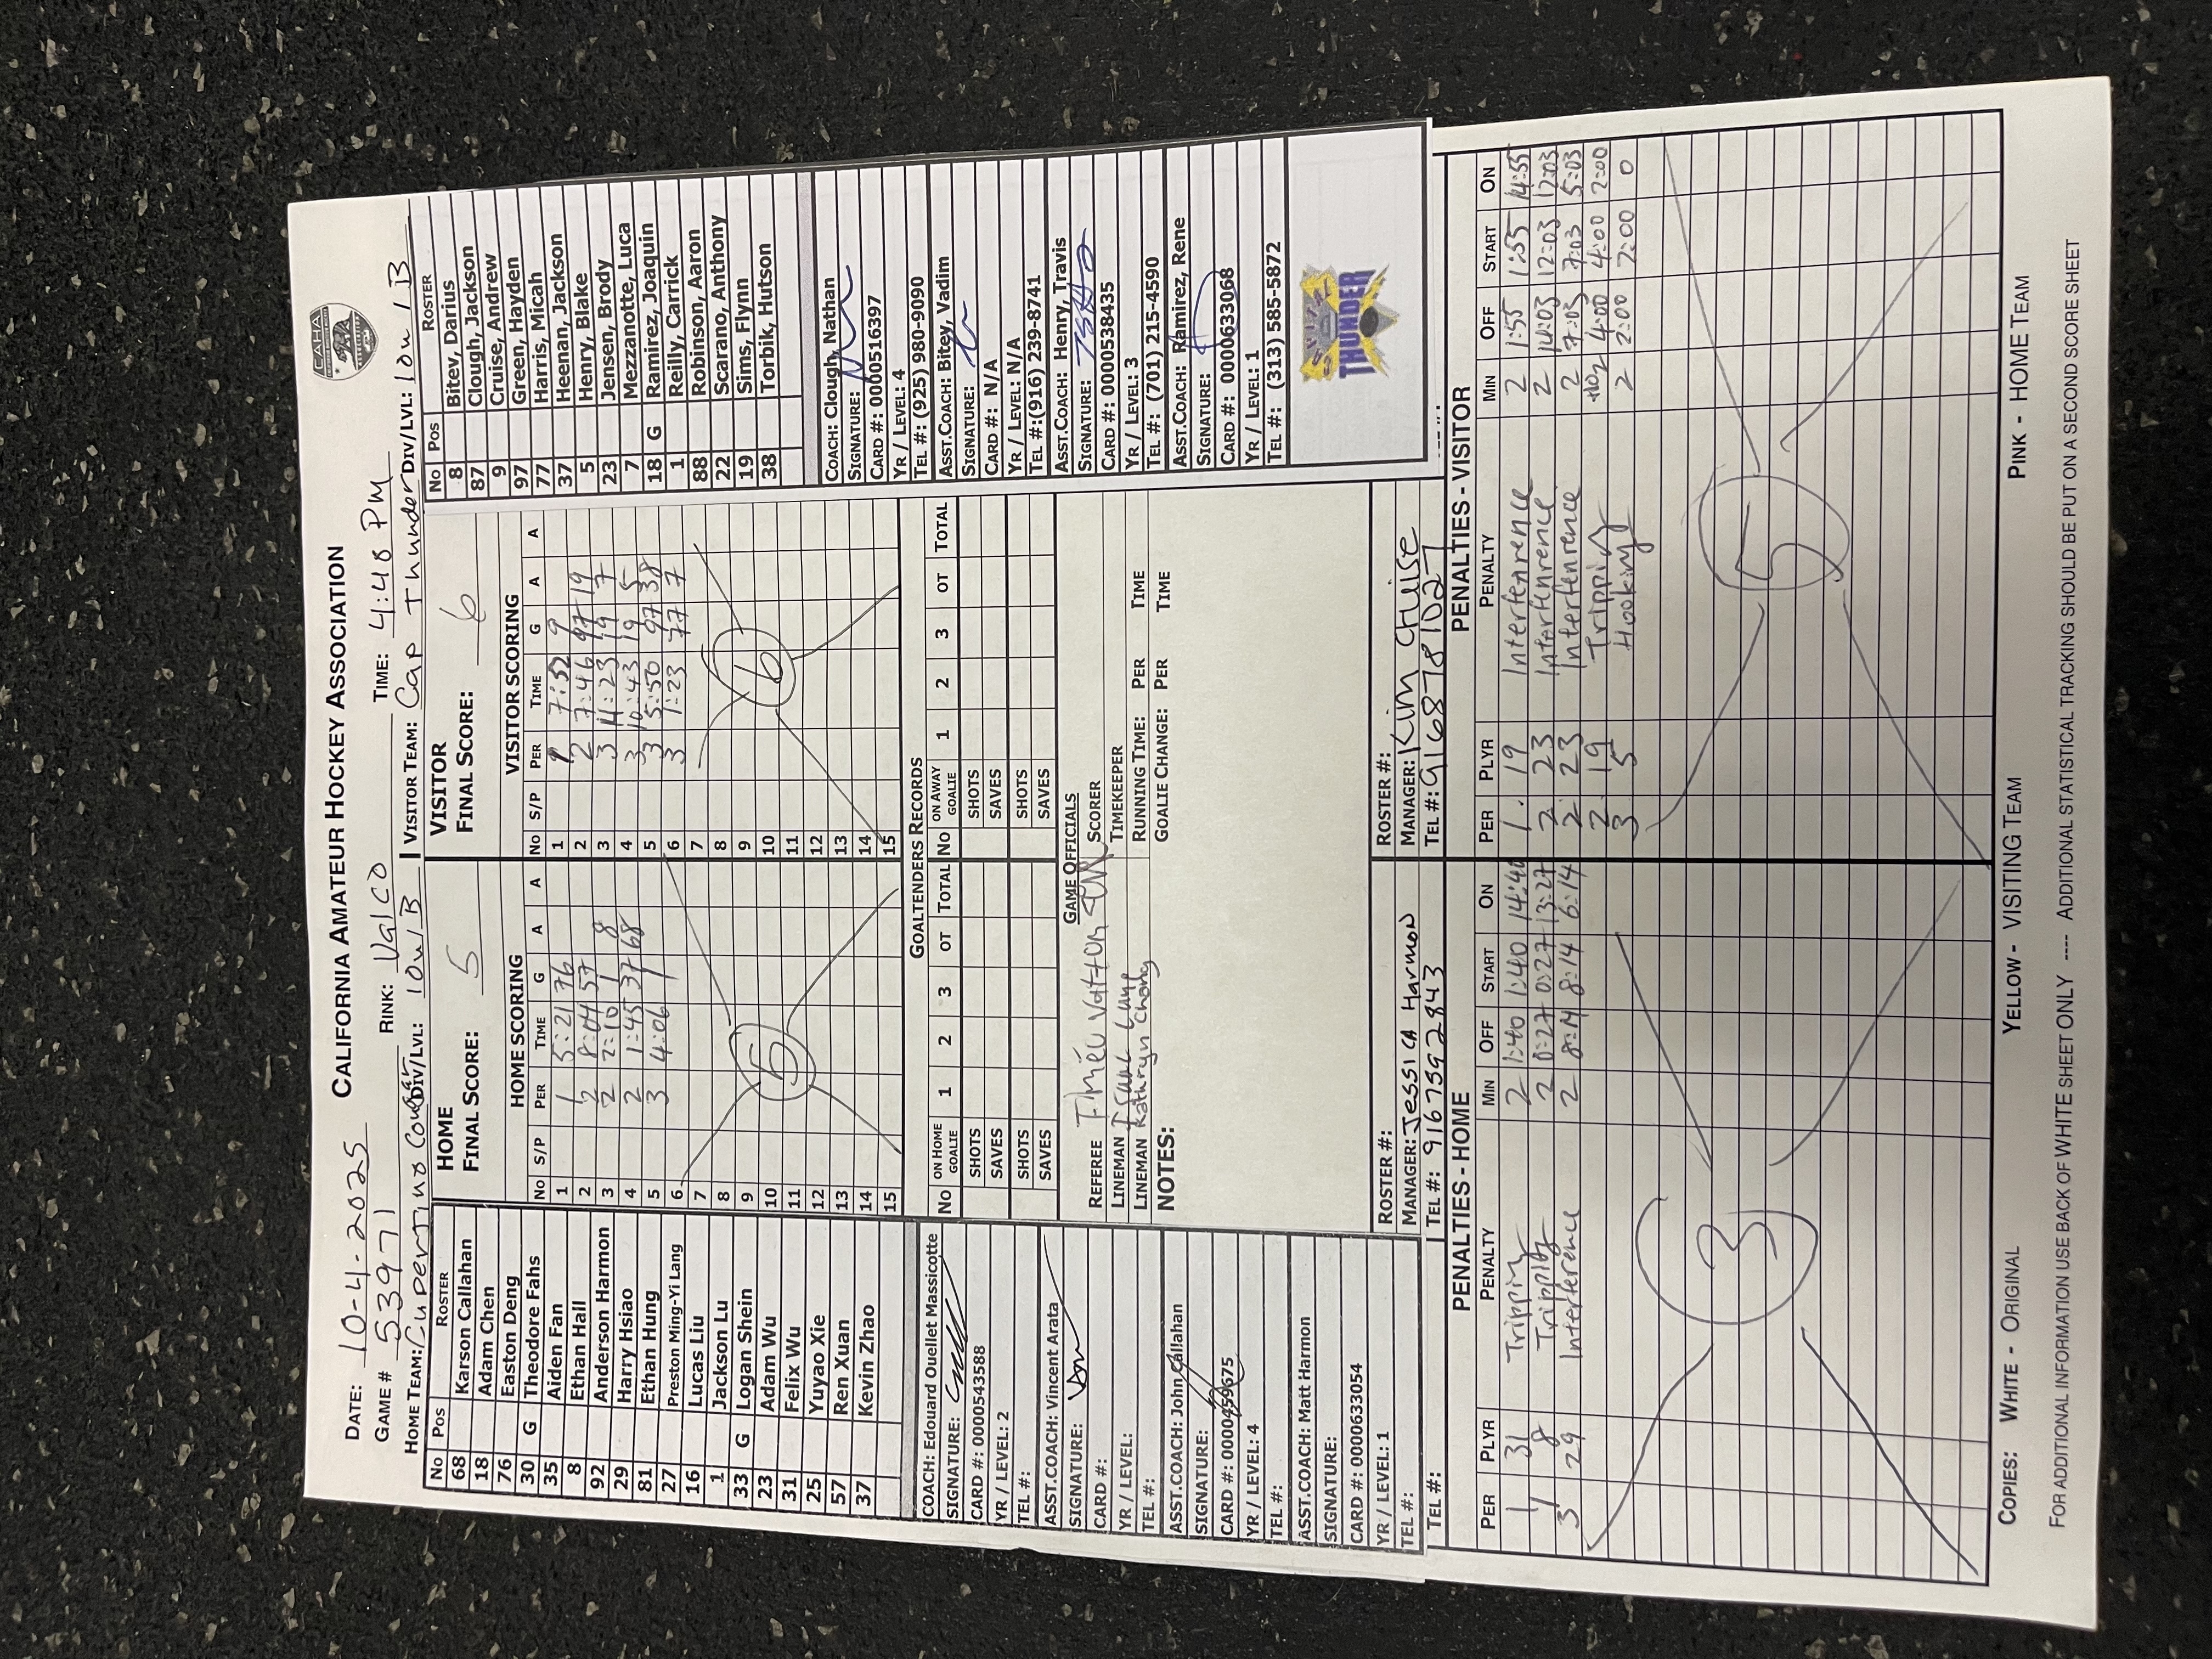 CALIFORNIA AMATEUR HOCKEY ASSOCIATION
CAHA
DATE: 10-4-2025
GAME # 53971 RINK: Valco TIME: 4:40 PM
HOME TEAM: Cupertino Cougar DIV/LVL: 10u/B VISITOR TEAM: Cap Thunder DIV/LVL: 10u 1B
No Pos ROSTER
68 Karson Callahan
18 Adam Chen
76 Easton Deng
30 G Theodore Fahs
35 Aiden Fan
8 Ethan Hall
92 Anderson Harmon
29 Harry Hsiao
81 Ethan Hung
27 Preston Ming-Yi Lang
16 Lucas Liu
1 Jackson Lu
33 G Logan Shein
23 Adam Wu
31 Felix Wu
25 Yuyao Xie
57 Ren Xuan
37 Kevin Zhao
COACH: Edouard Ouellet Massicotte
SIGNATURE:
CARD #: 0000543588
YR / LEVEL: 2
TEL #:
ASST.COACH: Vincent Arata
SIGNATURE:
CARD #:
YR / LEVEL:
TEL #:
ASST.COACH: John Callahan
SIGNATURE:
CARD #: 0000459675
YR / LEVEL: 4
TEL #:
ASST.COACH: Matt Harmon
SIGNATURE:
CARD #: 0000633054
YR / LEVEL: 1
TEL #:
TEL #:
HOME
FINAL SCORE: 5
HOME SCORING
No S/P PER TIME G A A
1 1 5:21 76
2 2 8:04 57
3 2 2:10 1 8
4 2 1:45 37 68
5 3 4:06 1
6
7
8
9
10
11
12
13
14
15
5
VISITOR
FINAL SCORE: 6
VISITOR SCORING
No S/P PER TIME G A A
1 1 7:52 9
2 2 7:46 97 19
3 3 11:23 19 7
4 3 10:43 19 5
5 3 5:50 97 38
6 3 1:23 77 7
7
8
9
10
11
12
13
14
15
6
GOALTENDERS RECORDS
No ON HOME GOALIE 1 2 3 OT TOTAL No ON AWAY GOALIE 1 2 3 OT TOTAL
SHOTS SHOTS
SAVES SAVES
SHOTS SHOTS
SAVES SAVES
GAME OFFICIALS
REFEREE SCORER
LINEMAN TIMEKEEPER
LINEMAN Kathryn Chong RUNNING TIME: PER TIME
NOTES: GOALIE CHANGE: PER TIME
ROSTER #: ROSTER #:
MANAGER: Jessica Harmon MANAGER: Kim Cruise
TEL #: 9167592843 TEL #: 9168781027
No Pos ROSTER
8 Bitev, Darius
87 Clough, Jackson
9 Cruise, Andrew
97 Green, Hayden
77 Harris, Micah
37 Heenan, Jackson
5 Henry, Blake
23 Jensen, Brody
7 Mezzanotte, Luca
18 G Ramirez, Joaquin
1 Reilly, Carrick
88 Robinson, Aaron
22 Scarano, Anthony
19 Sims, Flynn
38 Torbik, Hutson
COACH: Clough, Nathan
SIGNATURE:
CARD #: 0000516397
YR / LEVEL: 4
TEL #: (925) 980-9090
ASST.COACH: Bitev, Vadim
SIGNATURE:
CARD #: N/A
YR / LEVEL: N/A
TEL #:(916) 239-8741
ASST.COACH: Henry, Travis
SIGNATURE:
CARD #: 0000538435
YR / LEVEL: 3
TEL #: (701) 215-4590
ASST.COACH: Ramirez, Rene
SIGNATURE:
CARD #: 0000633068
YR / LEVEL: 1
TEL #: (313) 585-5872
THUNDER
PENALTIES - HOME
PER PLYR PENALTY MIN OFF START ON
1 31 Tripping 2 1:40 1:40 14:40
1 8 Tripping 2 0:27 0:27 13:27
3 29 Interference 2 8:14 8:14 6:14
3
PENALTIES - VISITOR
PER PLYR PENALTY MIN OFF START ON
1 19 Interfenrence 2 1:55 1:55 14:55
2 23 Interfenrence 2 14:03 12:03 12:03
2 23 Interfenrence 2 7:03 7:03 5:03
2 19 Tripping 2 4:00 4:00 2:00
3 5 Hooking 2 2:00 2:00 0
5
COPIES: WHITE - ORIGINAL YELLOW - VISITING TEAM PINK - HOME TEAM
FOR ADDITIONAL INFORMATION USE BACK OF WHITE SHEET ONLY ---- ADDITIONAL STATISTICAL TRACKING SHOULD BE PUT ON A SECOND SCORE SHEET